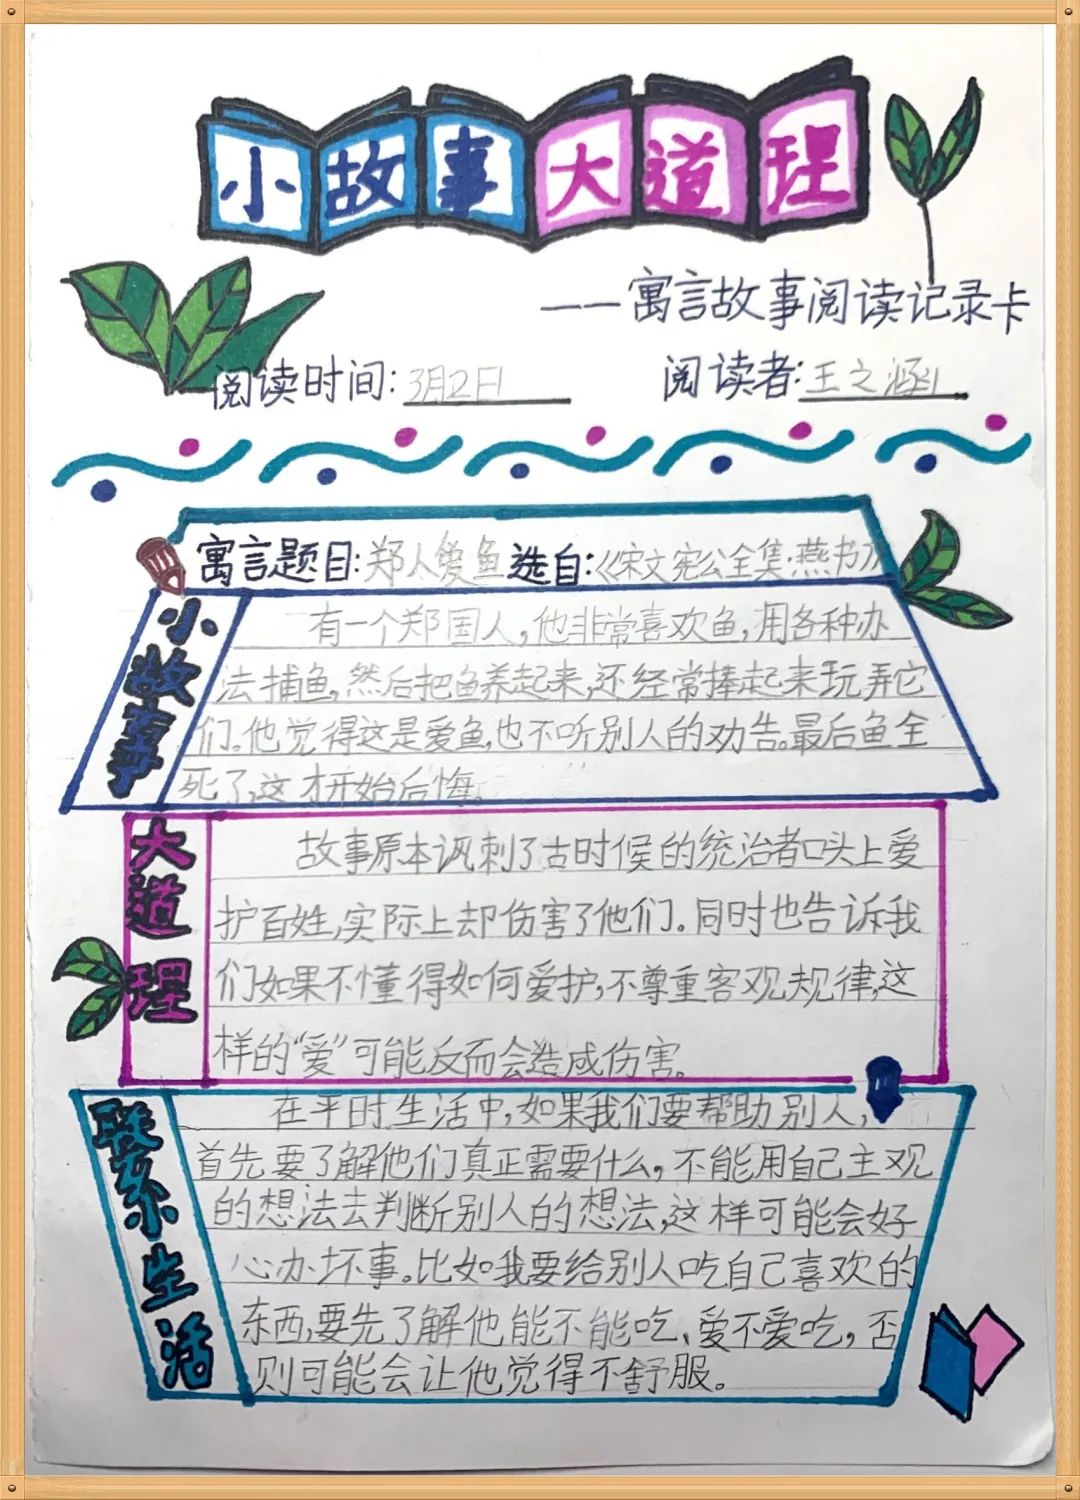 小故事大道理
——寓言故事阅读记录卡
阅读时间:3月2日 阅读者:王之涵
寓言题目:郑人爱鱼 选自:《宋文宪公全集·燕书》
小故事
有一个郑国人,他非常喜欢鱼,用各种办
法捕鱼,然后把鱼养起来,还经常捧起来玩弄它
们。他觉得这是爱鱼,也不听别人的劝告。最后鱼全
死了,这才开始后悔。
大道理
故事原本讽刺了古时候的统治者口头上爱
护百姓,实际上却伤害了他们。同时也告诉我
们如果不懂得如何爱护,不尊重客观规律,这
样的“爱”可能反而会造成伤害。
联系生活
在平时生活中,如果我们要帮助别人,
首先要了解他们真正需要什么,不能用自己主观
的想法去判断别人的想法,这样可能会好
心办坏事。比如我要给别人吃自己喜欢的
东西,要先了解他能不能吃、爱不爱吃,否
则可能会让他觉得不舒服。